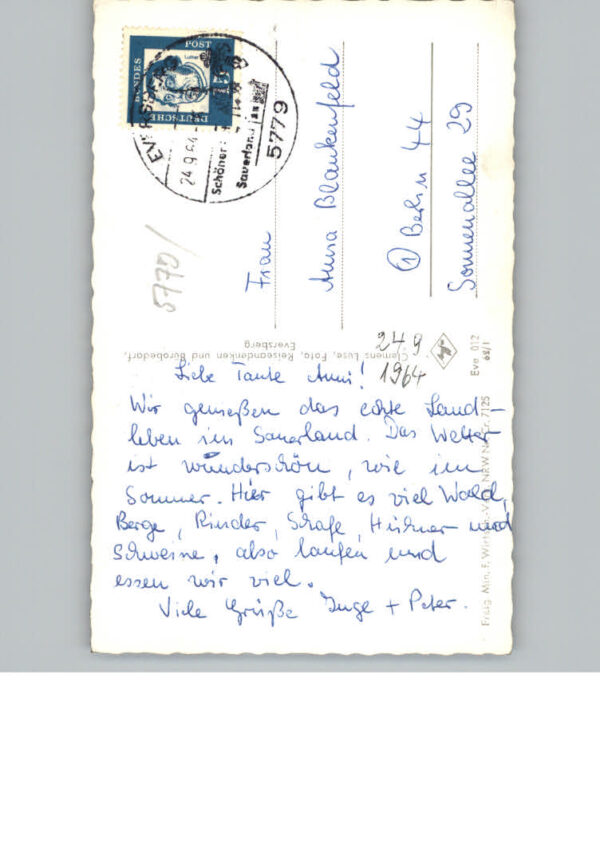 DEUTSCHE
BUNDES
POST
Luther
15
24.9.64
Schöner
Sauerland
5779
5770/
Frau
Anna Blankenfeld
① Berlin 44
Sonnenallee 29
Clemens Luse, Foto, Reiseandenken und Bürobedarf,
Eversberg
Eve 012
68/1
249
1964
Liebe Tante Anni!
Wir genießen das echte Land-
leben im Sauerland. Das Wetter
ist wunderschön, wie im
Sommer. Hier gibt es viel Wald,
Berge, Rinder, Schafe, Hühner und
Schweine, also laufen und
essen wir viel.
Viele Grüße Inge + Peter.
Freig. Min. f. Wirtsch. NRW Nr. 7125